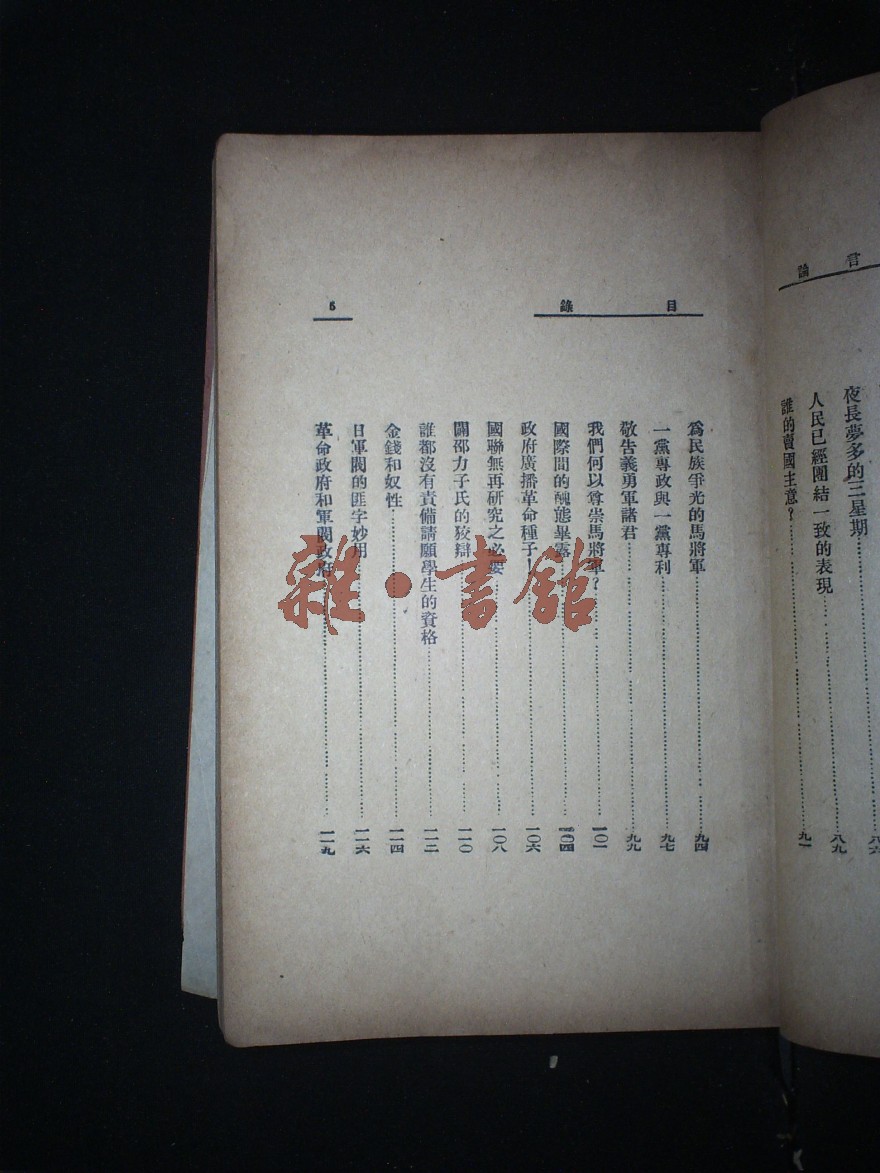 言論
夜長夢多的三星期……八六
人民已經團結一致的表現……八九
誰的賣國主意?……九一
目錄
6
爲民族爭光的馬將軍……九四
一黨專政與一黨專利……九七
敬告義勇軍諸君……九九
我們何以尊崇馬將軍?……一〇一
國際間的醜態畢露……一〇四
政府廣播革命種子!……一〇六
國聯無再研究之必要……一〇八
闢邵力子氏的狡辯……一一〇
誰都沒有責備請願學生的資格……一一二
金錢和奴性……一一四
日軍閥的匪字妙用……一一六
革命政府和軍閥政府……一一九
雜·書館